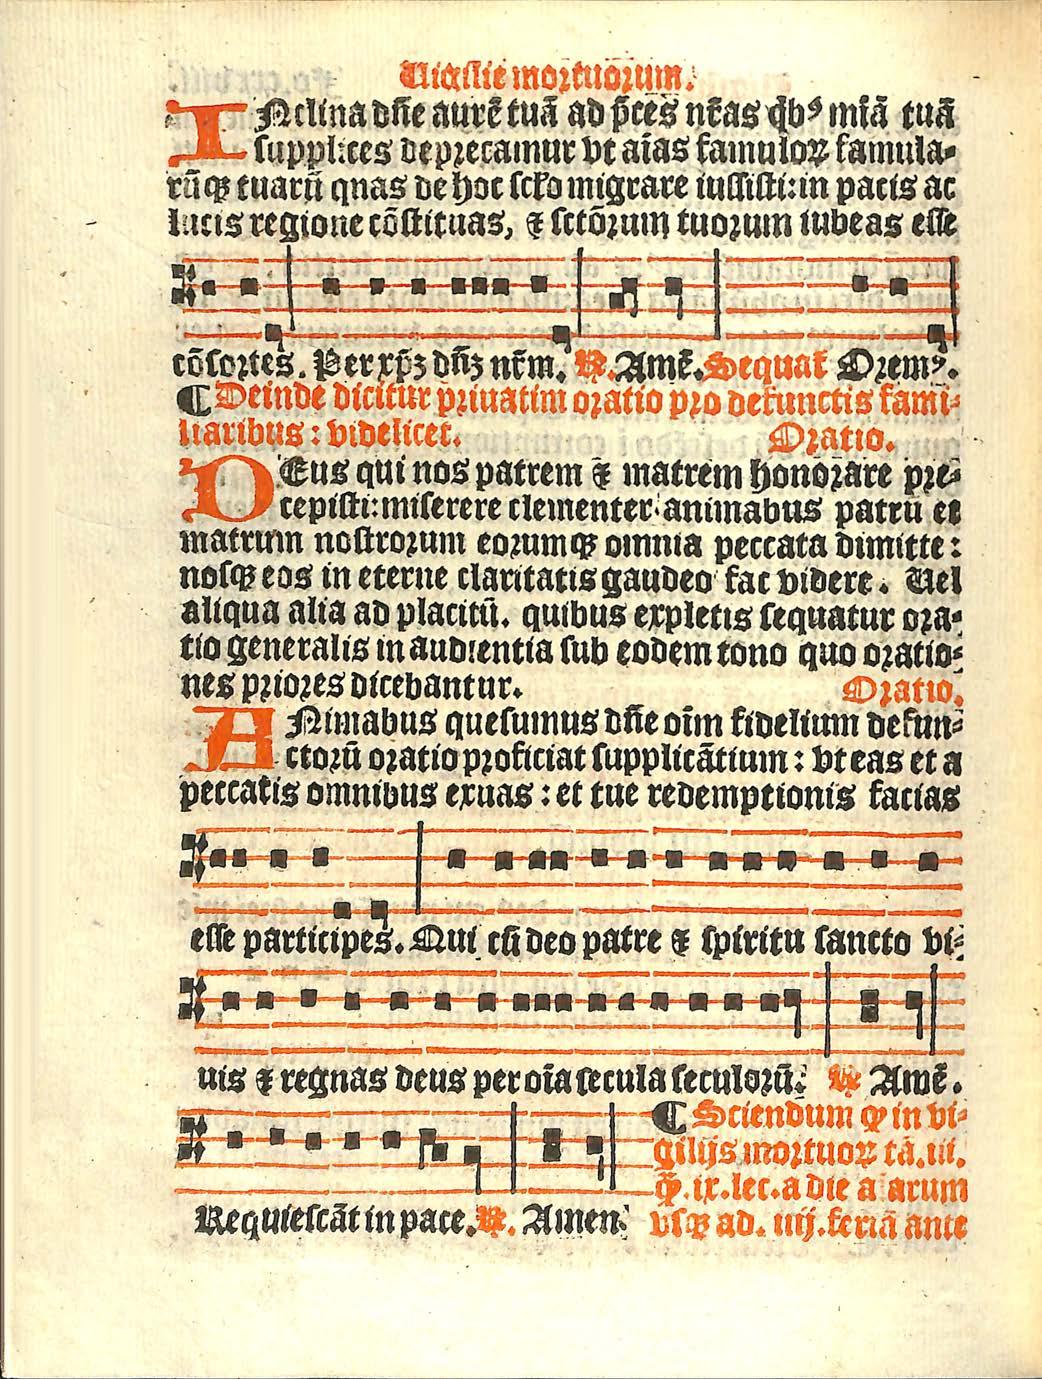 Uigilie mortuorum.
INclina dñe aurẽ tuã ad p̃ces nr̃as q̃bꝰ mĩaͣ tuã
supplices deprecamur vt aĩas famuloꝝ famula-
rũqꝫ tuarũ qnas de hoc sclo migrare iussisti: in pacis ac
lucis regione cõstituas, ⁊ sctõrum tuorum iubeas esse
cõsortes. Per xp̃ꝫ dñꝫ nr̃m. ℟. Amẽ. Sequat̃ Oremꝰ.
¶ Deinde dicitur priuatim oratio pro defunctis fami-
liaribus: videlicet. Oratio.
DEus qui nos patrem ⁊ matrem honorare pre-
cepisti: miserere clementer animabus patrũ et
matrum nostrorum eorumqꝫ omnia peccata dimitte:
nosqꝫ eos in eterne claritatis gaudeo fac videre. Uel
aliqua alia ad placitũ. quibus expletis sequatur ora-
tio generalis in audientia sub eodem tono quo oratio-
nes priores dicebantur. Oratio.
ANimabus quesumus dñe oĩm fidelium defun-
ctorũ oratio proficiat supplicãtium: vt eas et a
peccatis omnibus exuas: et tue redemptionis facias
esse participes. Qui cũ deo patre ⁊ spiritu sancto vi-
uis ⁊ regnas deus per oĩa secula seculorũ. ℟ Amẽ.
¶ Sciendum ꝙ in vi-
gilijs mortuoꝝ tã .iii.
ꝙ̃ .ix. lec. a die aĩarum
vsqꝫ ad .iiij. feriã ante
Requiescãt in pace. ℟. Amen.